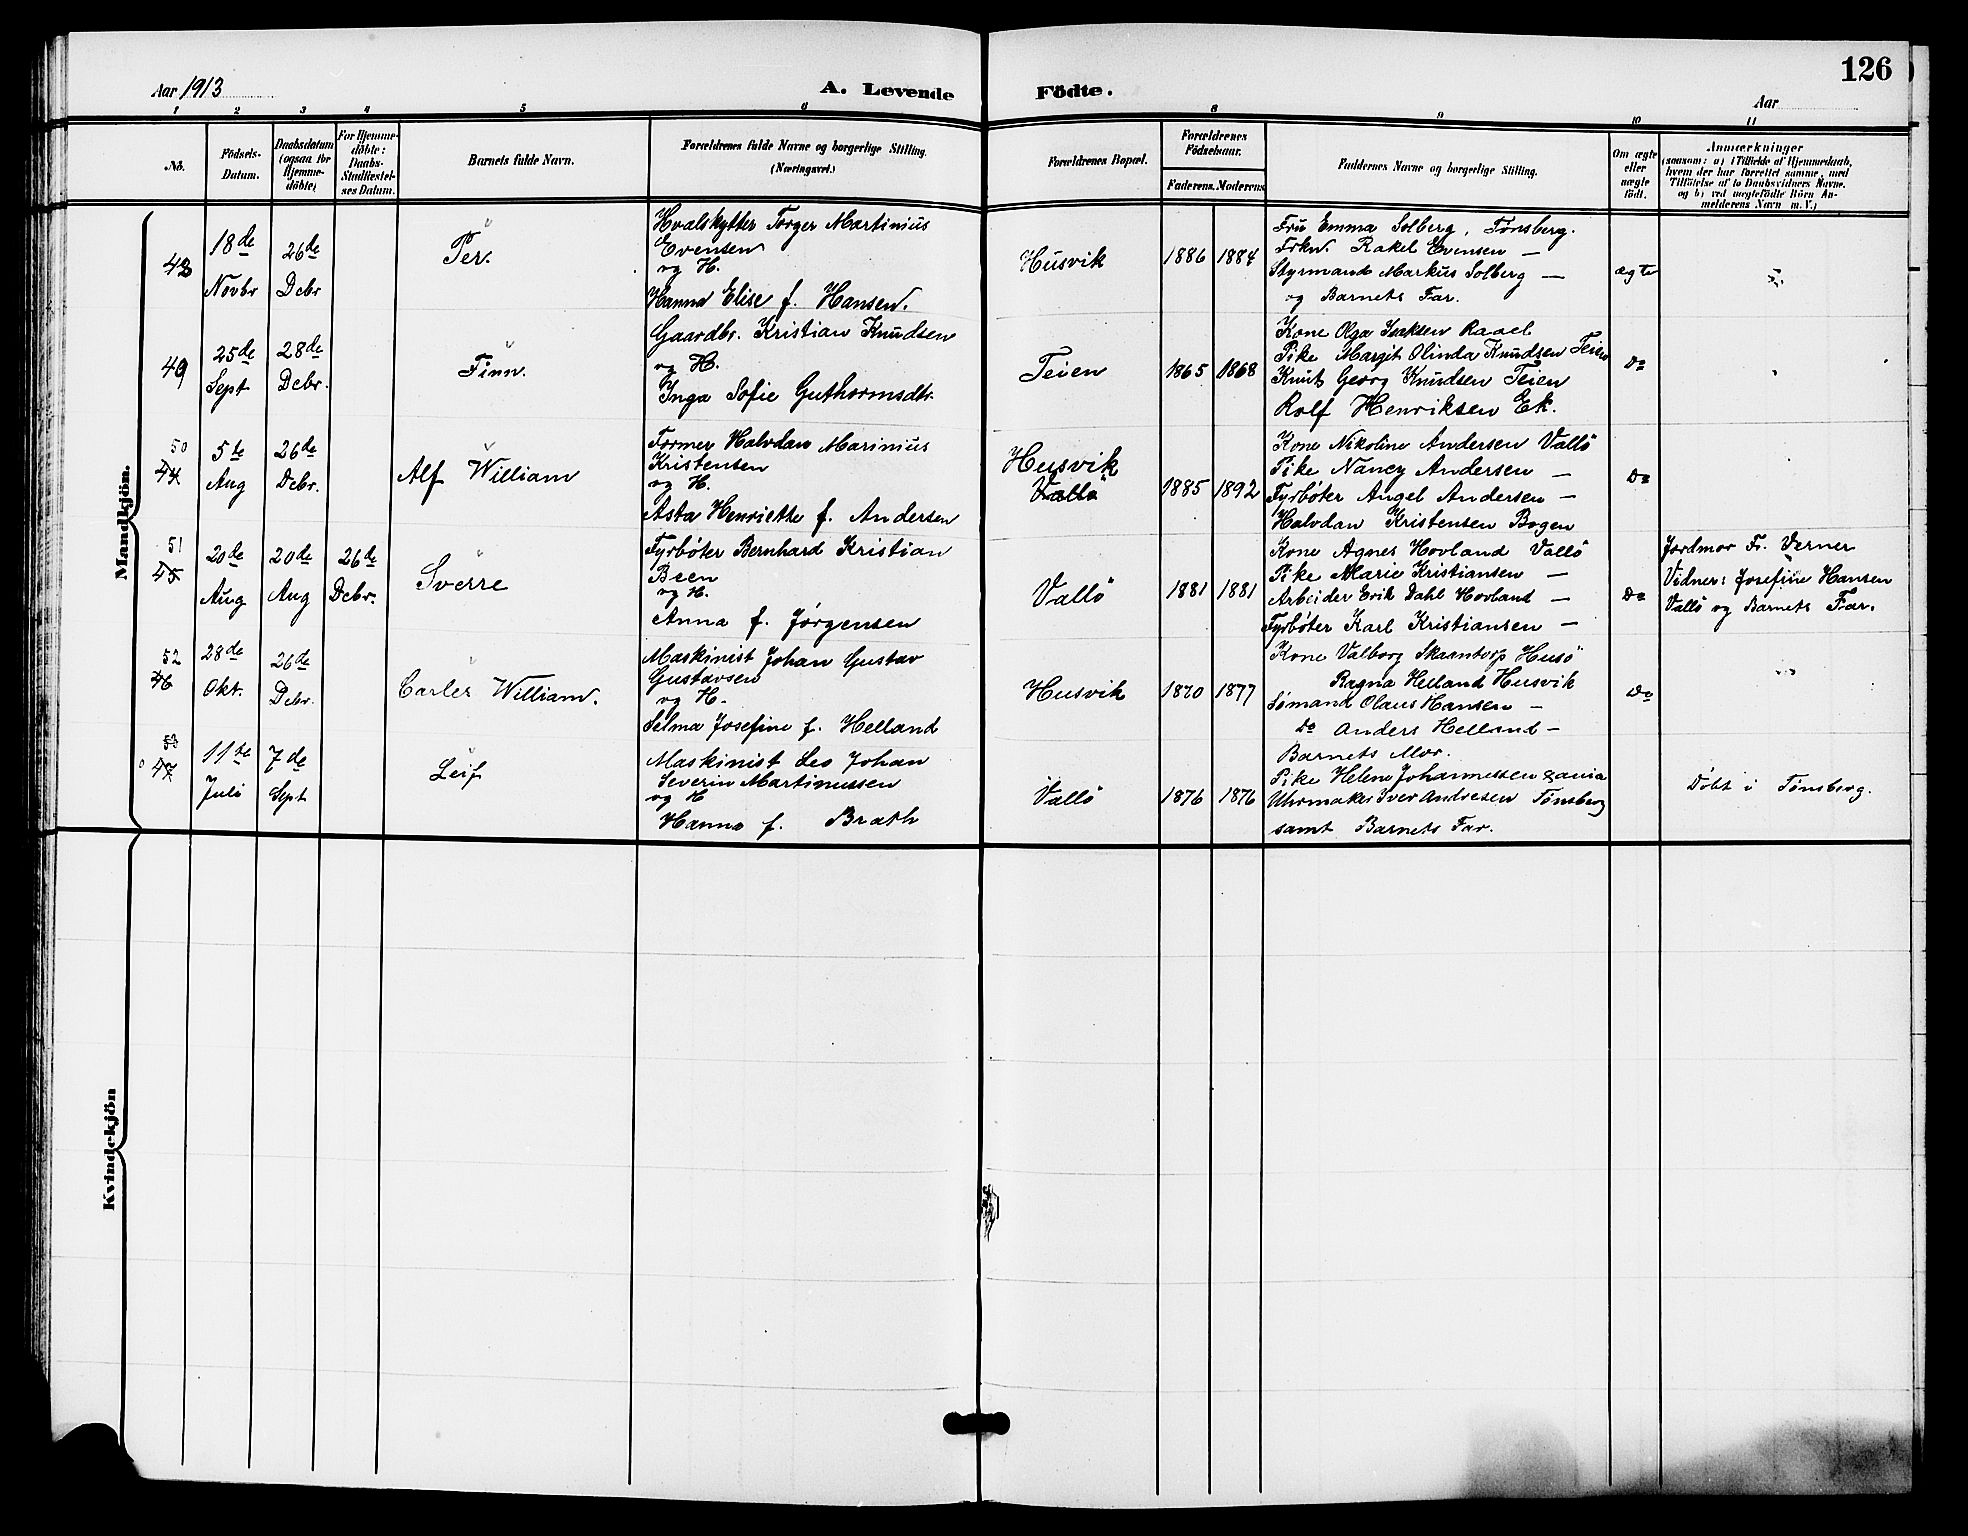 Aar 1913
A. Levende
Födte.
Aar
126
1 2 3 4 5 6 8 9 10 11
No.
Födsels-Datum.
Daabsdatum (ogsaa for Hjemmedöbte)
For Hjemmedöbte: Daabs-Stadfæstelses Datum.
Barnets fulde Navn.
Forældrenes fulde Navne og borgerlige Stilling.
(Næringsvei.)
Forældrenes Bopæl.
Forældrenes Födselsaar.
Faderens. Moderens.
Faddernes Navne og borgerlige Stilling.
Om ægte eller uægte födt.
Anmærkninger
(saasom: a) i Tilfælde af Hjemmedaab,
hvem der har forrettet samme, med
Tilföielse af to Daabsvidners Navne,
og b) ved uegtefödte Börn An-
melderens Navn m. V.)
Mandkjön.
18de Novbr
26de Debr
Per.
Hvalskytter Torger Martinius
Evensen
og H.
Hanna Elise f. Hansen.
Husvik
1886 1884
Fru Emma Solberg, Tønsberg.
Frkn. Rakel Evensen —
Styrmand Markus Solberg —
og Barnets Far.
ægte
49
25de Sept
28de Debr.
Finn.
Gaardbr. Kristian Knudsen
og H.
Inga Sofie Guthormsdtr.
Teien
1865 1868
Kone Olga Isaksen Raael
Pike Margit Olinda Knudsen Teien
Knut Georg Knudsen Teien
Rolf Henriksen Ek.
Do
50
44
5te Aug
26de Debr.
Alf William
Former Halvdan Marinius
Kristensen
og H.
Asta Henriette f. Andersen
Husvik
Vallö
1885 1892
Kone Nikoline Andersen Vallö
Pike Nancy Andersen —
Fyrböter Angel Andersen —
Halvdan Kristensen Bogen
Do
51
45
20de Aug
20de Aug
26de Debr.
Sverre
Fyrböter Bernhard Kristian
Been
og H.
Anna f. Jørgensen
Vallö
1881 1881
Kone Agnes Hovland Vallö
Pike Marie Kristiansen —
Arbeider Erik Dahl Hovland —
Fyrböter Karl Kristiansen —
Do
Jordmor Fr. Verner
Vidner: Josefine Hansen
Vallö og Barnets Far.
52
46
28de Okt.
26de Debr.
Carler William.
Maskinist Johan Gustav
Gustavsen
og H.
Selma Josefine f. Helland
Husvik
1870 1877
Kone Valborg Skaantorp Husö
Ragna Helland Husvik
Sømand Olaus Hansen —
Do Anders Helland —
Barnets Mor.
Do
53
47
11te Juli
7de Sept
Leif
Maskinist Leo Johan
Severin Martinussen
og H
Hanna f. Bræth
Vallö
1876 1876
Pike Helene Johannessen
Uhrmaker Iver Andresen Tønsberg
samt Barnets Far.
Döbt i Tønsberg.
Kvindekjön